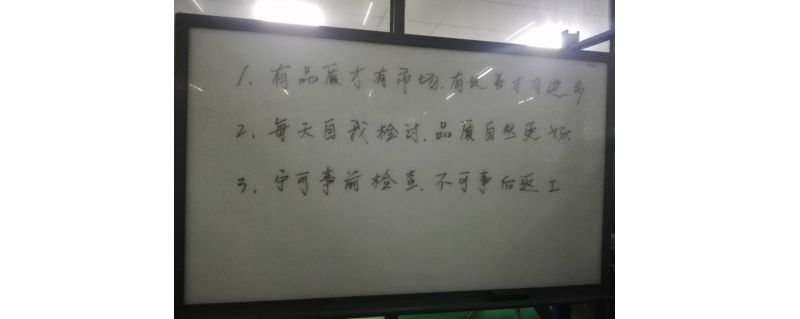 1、有品质才有市场、有改善才有进步.
2、每天自我检讨、品质自然更好.
3、宁可事前检查、不可事后返工